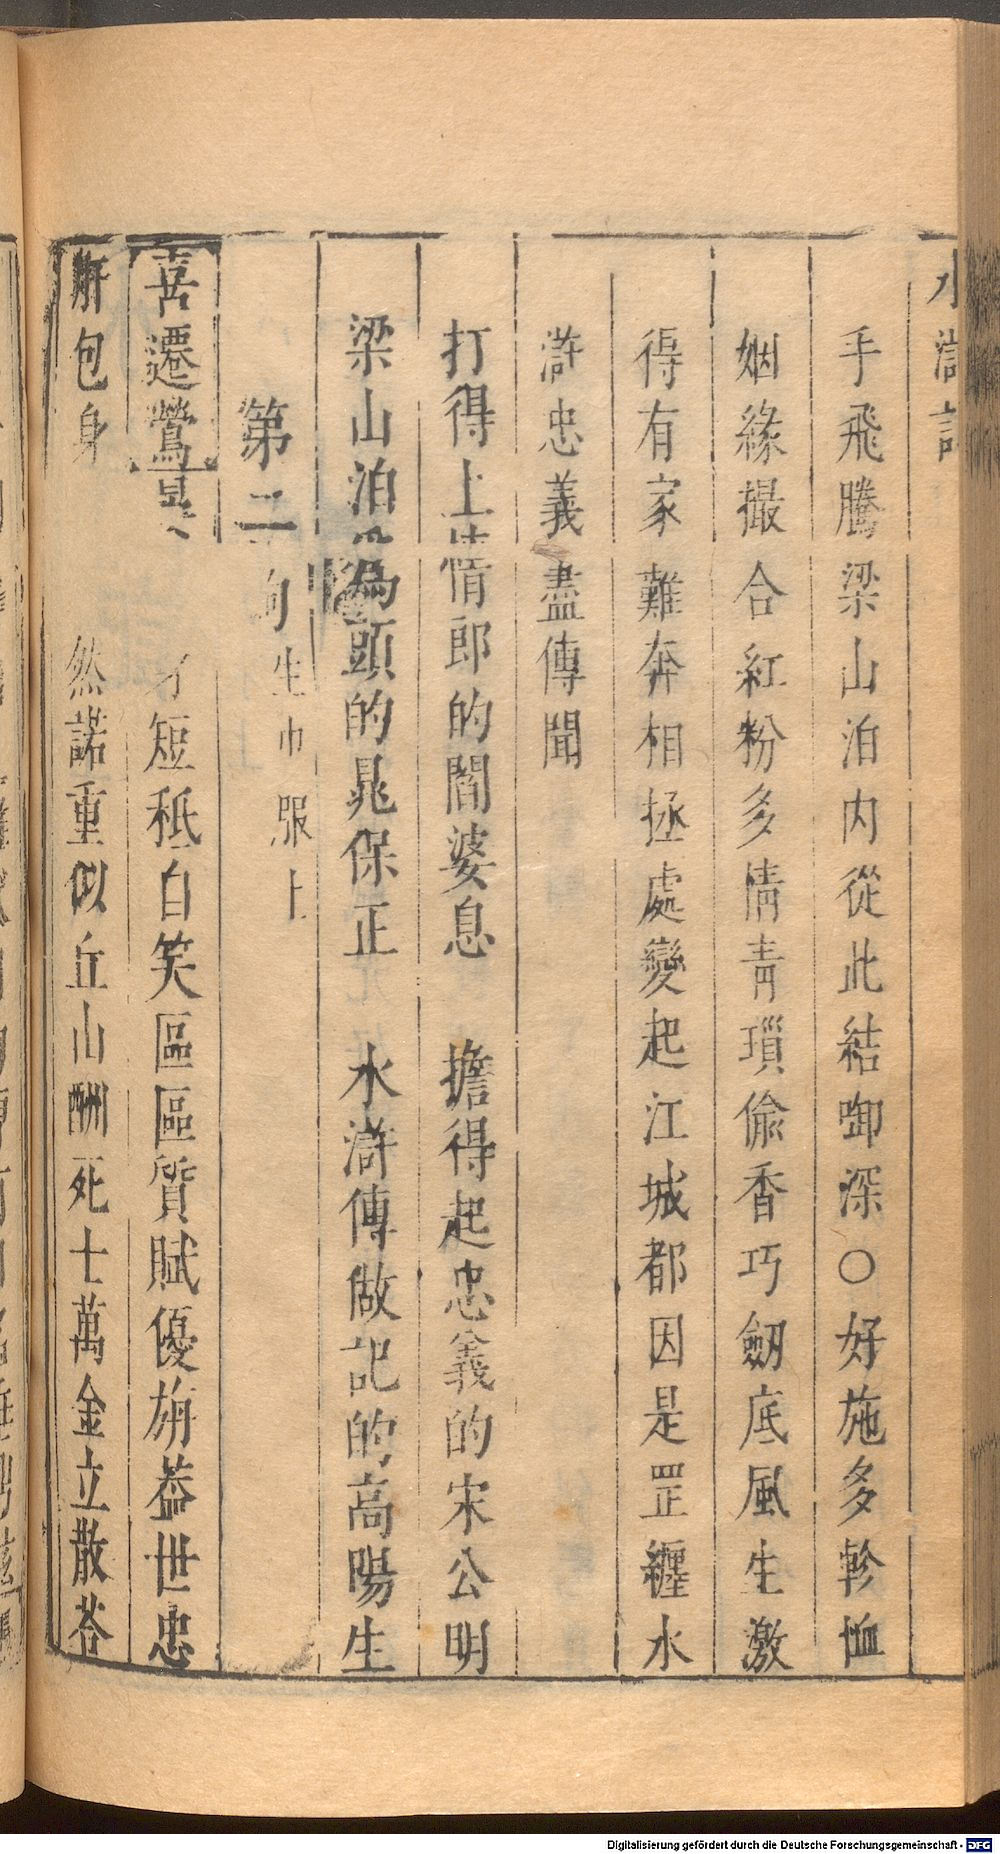 水滸記
手飛騰梁山泊内從此結啣深○好施多軫恤
姻緣撮合紅粉多情青瑣偷香巧劒底風生激
得有家難奔相拯處變起江城都因是罡纏水
滸忠義盡傳聞
打得上情郎的閻婆息　擔得起忠義的宋公明
梁山泊為頭的晁保正　水滸傳做記的高陽生
第二
生巾服上
喜遷鶯 才短秪自笑區區質賦優旃葢世忠
肝包身　然諾重似丘山酬死士萬金立散荅
Digitalisierung gefördert durch die Deutsche Forschungsgemeinschaft - DFG